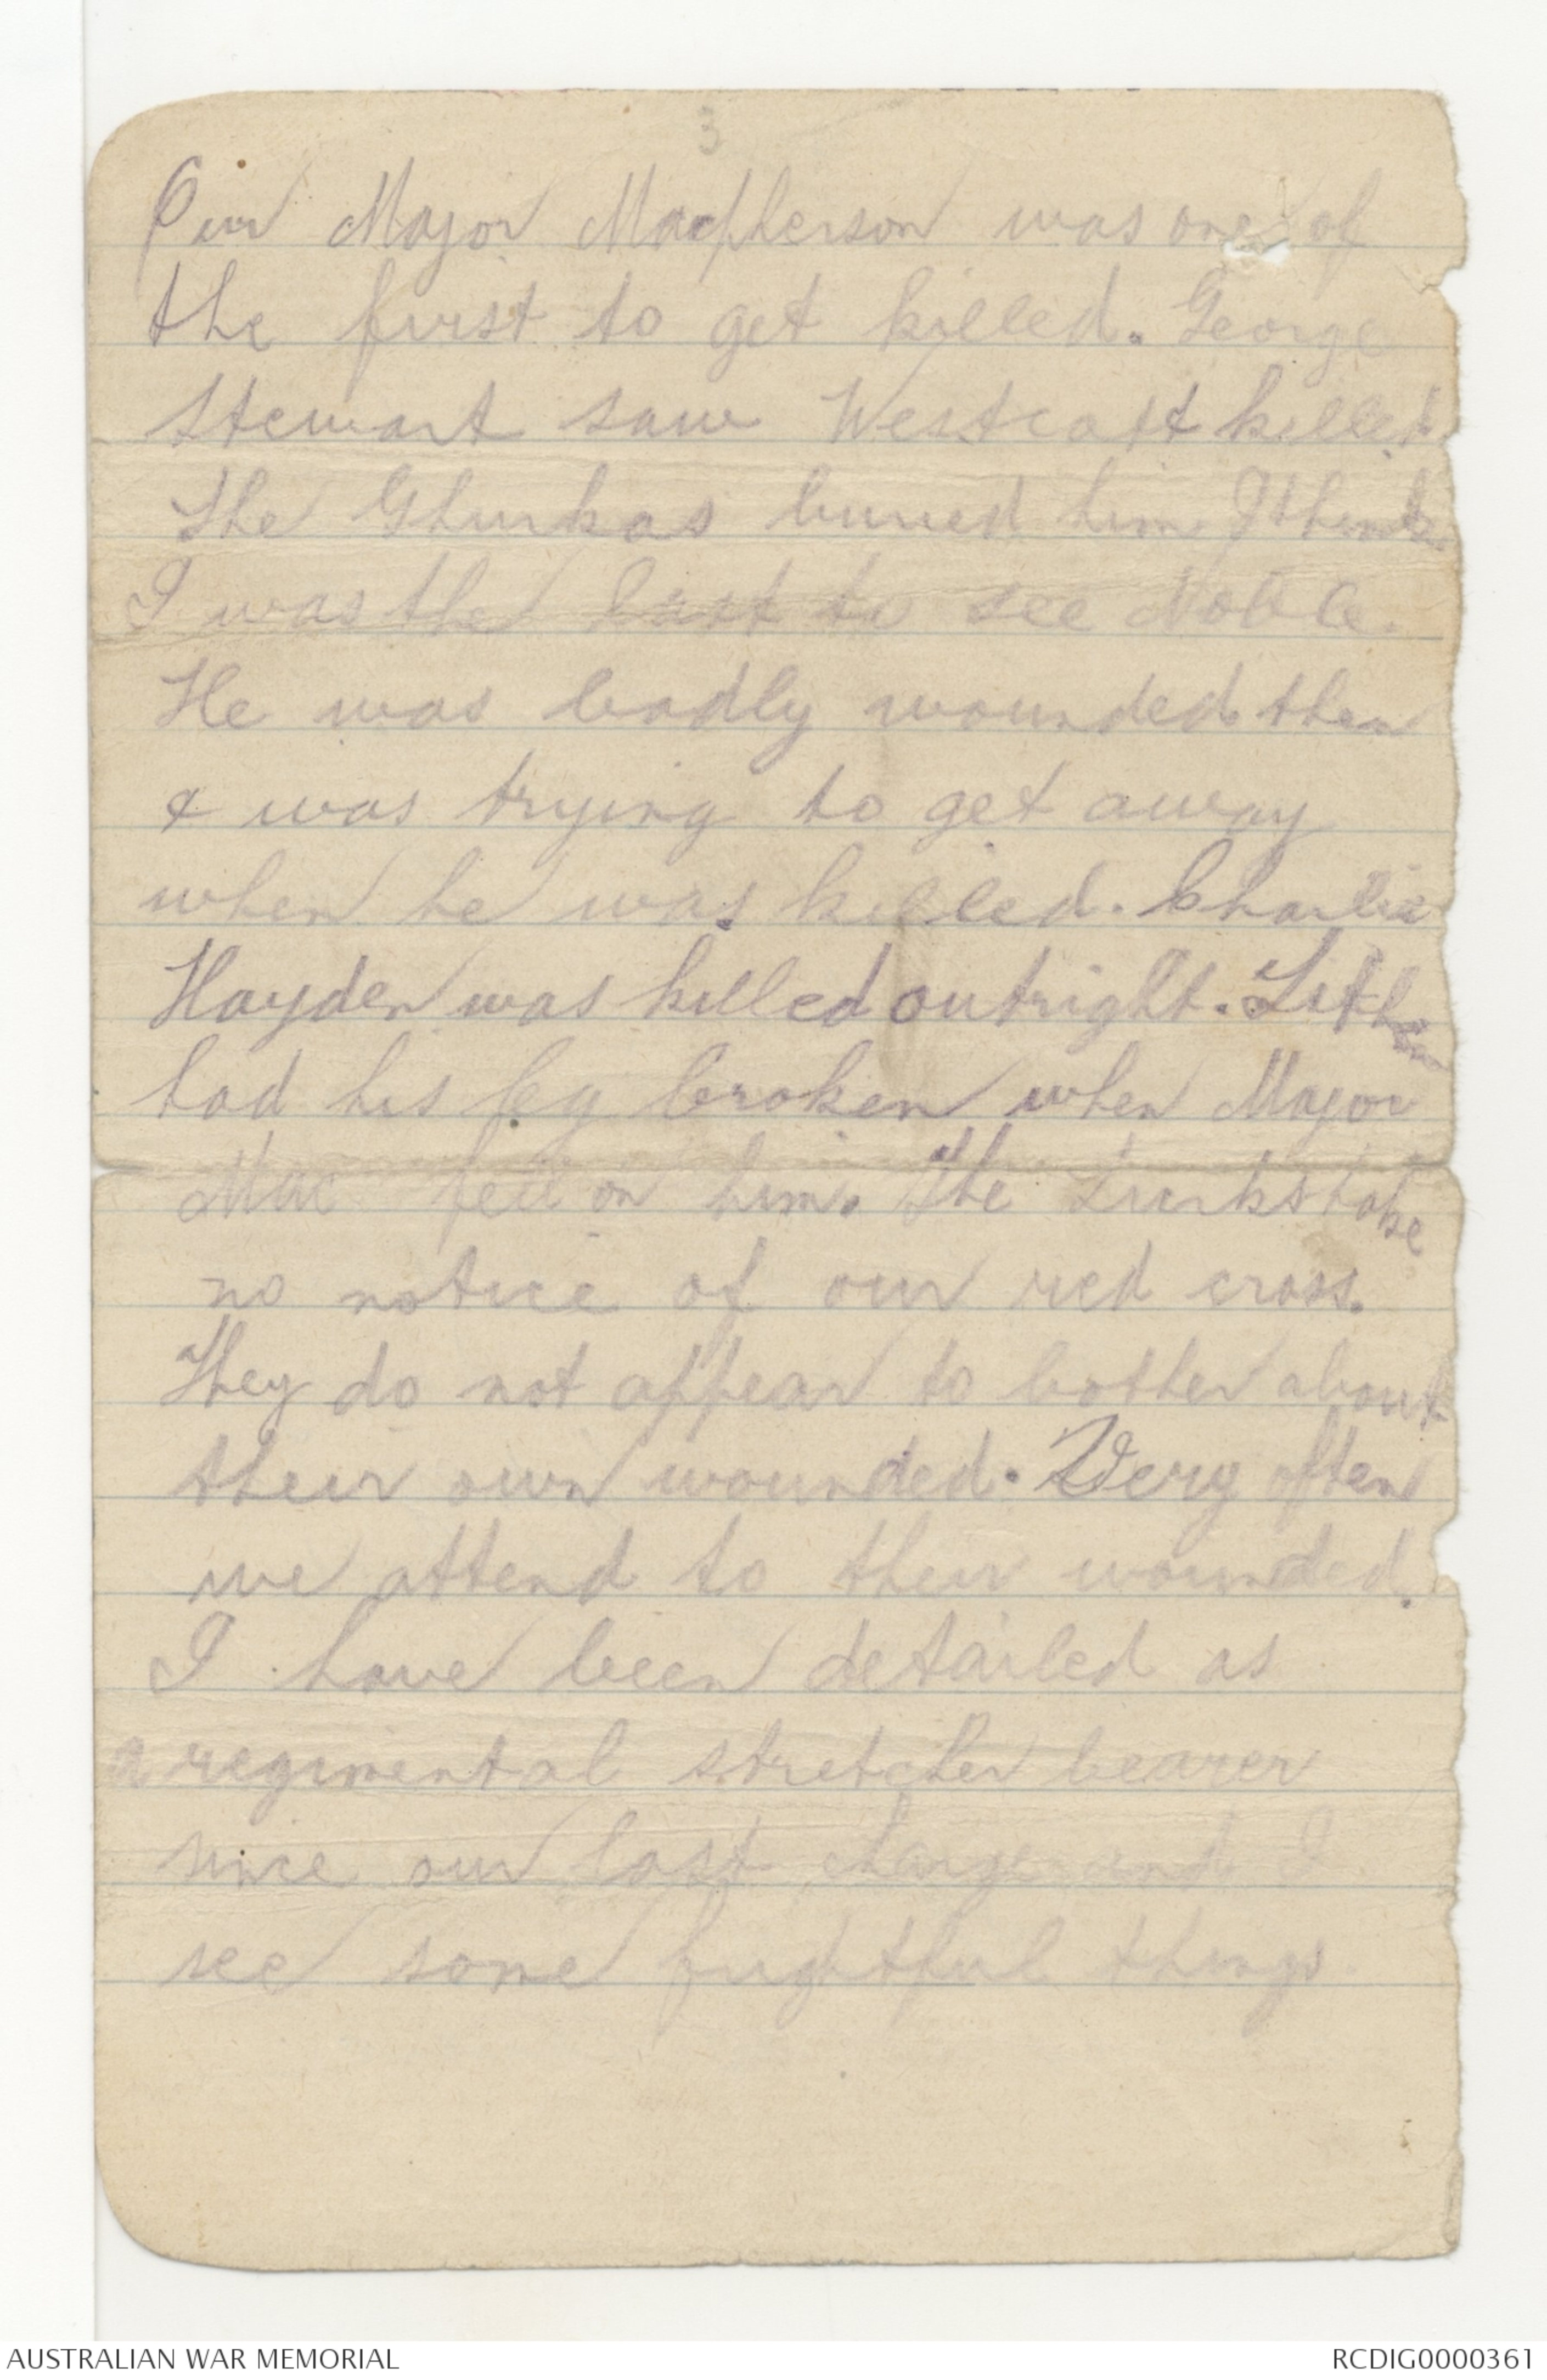 3
Our Major Macpherson was one of
the first to get killed. George
Stewart saw Westcott killed.
The Ghurkas buried him. I think
I was the last to see Noble.
He was badly wounded then
& was trying to get away
when he was killed. Charlie
Hayden was killed outright.
had his leg broken when Major
Mac fell on him. The Turks take
no notice of our red cross.
They do not appear to bother about
their own wounded. Very often
we attend to their wounded.
I have been detailed as
a regimental stretcher bearer
since our last charge and I
see some frightful things
AUSTRALIAN WAR MEMORIAL
RCDIG0000361